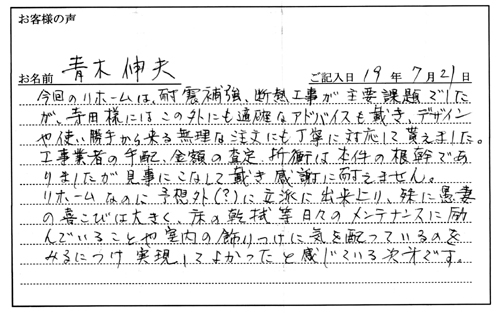 お客様の声
お名前 青木伸夫 ご記入日 19年7月21日
今回のリホームは、耐震補強、断熱工事が主要課題でした
が、寺田様にはこの外にも適確なアドバイスも戴き、デザイン
や使い勝手から来る無理な注文にも丁寧に対応して貰えました。
工事業者の手配、金額の査定、折衝は本件の根幹であ
りましたが見事にこなして戴き感謝に耐えません。
リホームなのに予想外(?)に立派に出来上り、殊に愚妻
の喜こびは大きく、床の乾拭等日々のメンテナンスに励
んでいることや室内の飾りつけに気を配っているのを
みるにつけ実現してよかったと感じている次才です。